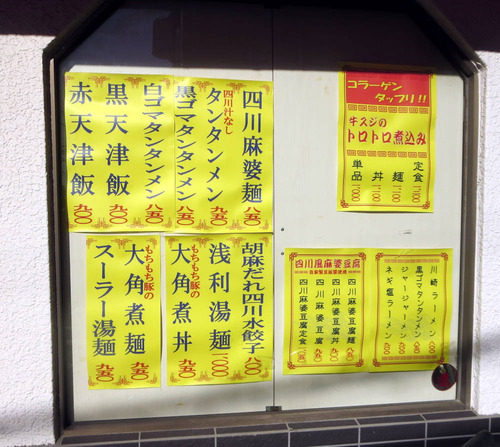 四川麻婆麺 八五〇
四川汁なし
タンタンメン 九五〇
黒ゴマタンタンメン 八五〇
白ゴマタンタンメン 八五〇
黒天津飯 九〇〇
赤天津飯 九〇〇
胡麻だれ四川水餃子 八〇〇
浅利湯麺 一、〇〇〇
もちもち豚の
大角煮丼 九五〇
もちもち豚の
大角煮麺 九五〇
スーラー湯麺 九五〇
コラーゲン
タップリ!!
牛スジの
トロトロ煮込み
定食
麺
丼
単品
四川風麻婆豆腐
四川麻婆麺
四川麻婆豆腐丼
四川麻婆豆腐
四川麻婆豆腐定食
川崎ラーメン
黒ゴマタンタンメン
ジャージャーメン
ネギ塩ラーメン